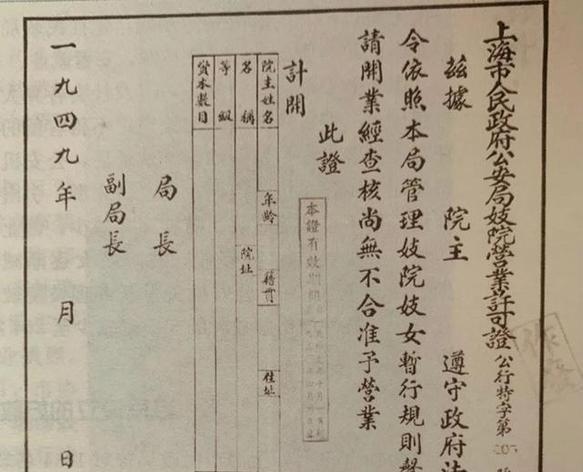 上海市人民政府公安局妓院營業許可證 公行特字第
茲據 院主 遵守政府法
令依照本局管理妓院妓女暫行規則聲
請開業經查核尚無不合准予營業
此證
本證有效期
計開
院主姓名 年齡 籍貫 住址
名稱 院址
等級
資本數目
局長
副局長
一九四九年 月 日
作廢